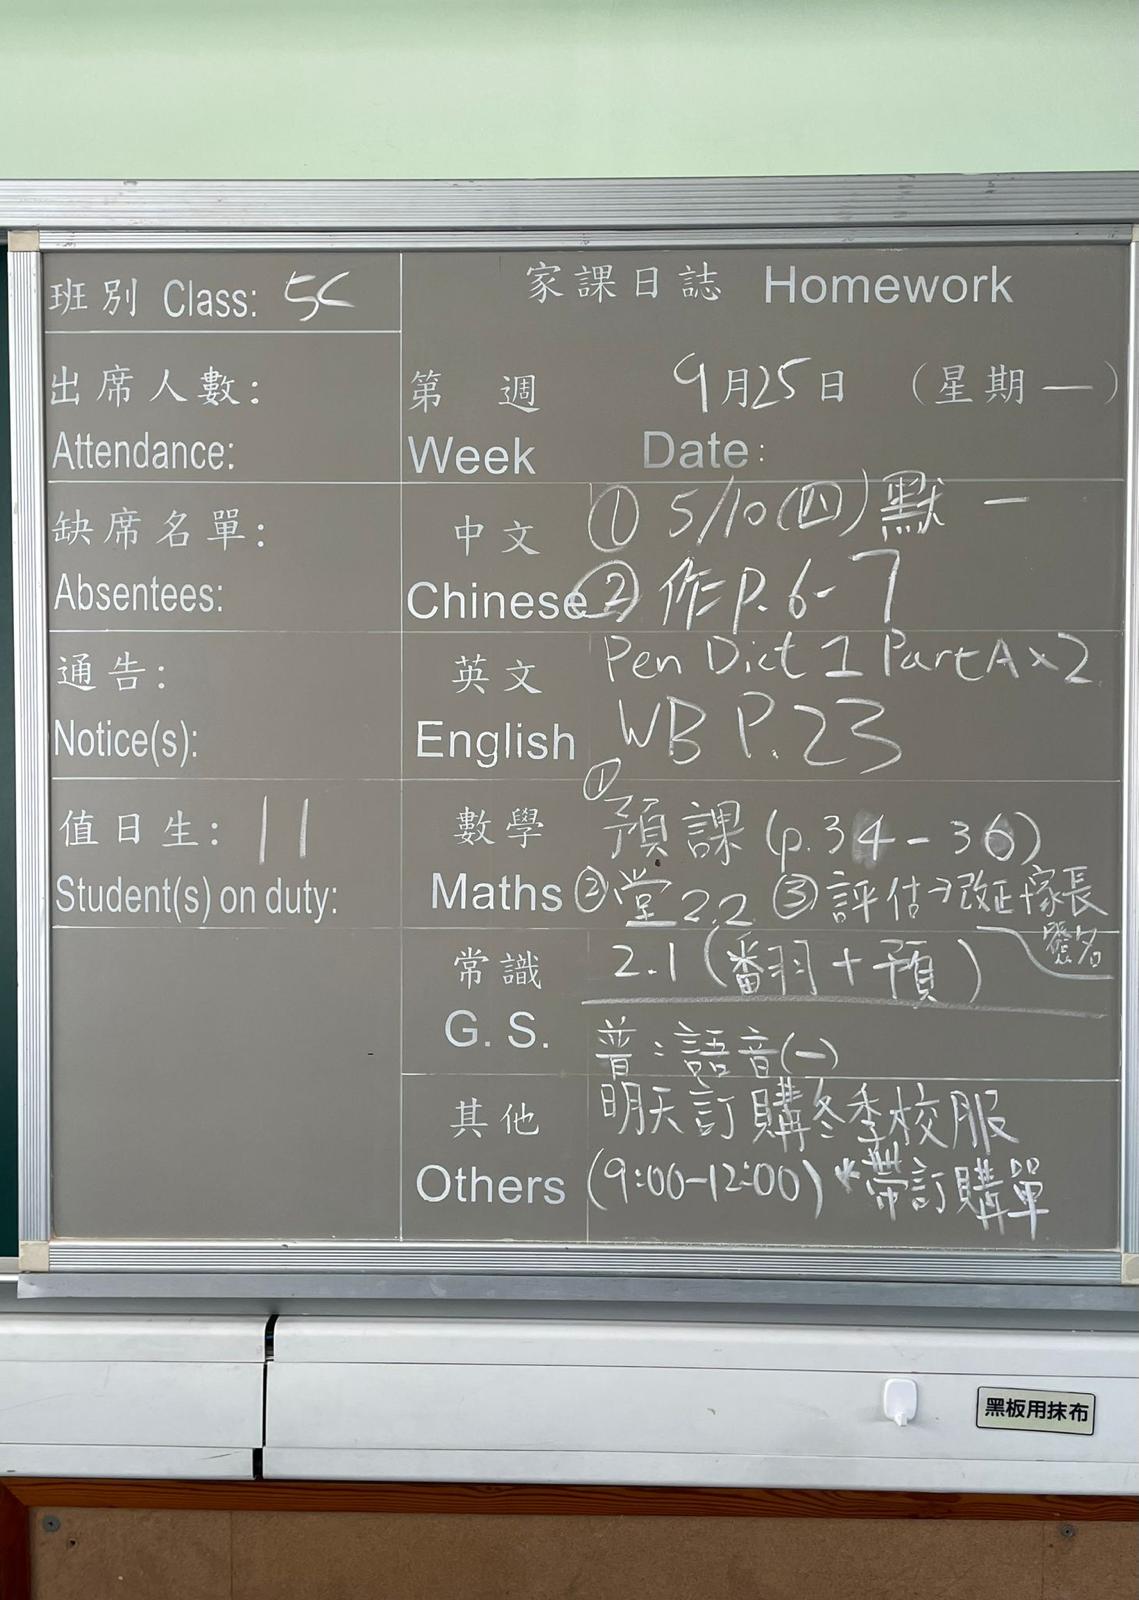 班別 Class: 5C
出席人數:
Attendance:
缺席名單:
Absentees:
通告:
Notice(s):
值日生: 11
Student(s) on duty:
家課日誌 Homework
第 週 9月25日 (星期一)
Week Date:
中文 ① 5/10(四)默一
Chinese ② 作 p.6-7
英文 Pen Dict 1 Part A x2
English WB P.23
數學 ① 預課 (p.34-36)
Maths ② 堂2.2 ③ 評估→改正+家長
簽名
常識 2.1 (翻+預)
G. S. 普:語音(一)
其他 明天訂購冬季校服
Others (9:00-12:00) *帶訂購單
黑板用抹布